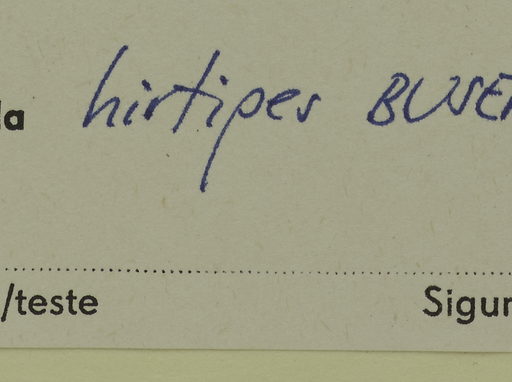 la hirtipes BUSE
/teste Sigur